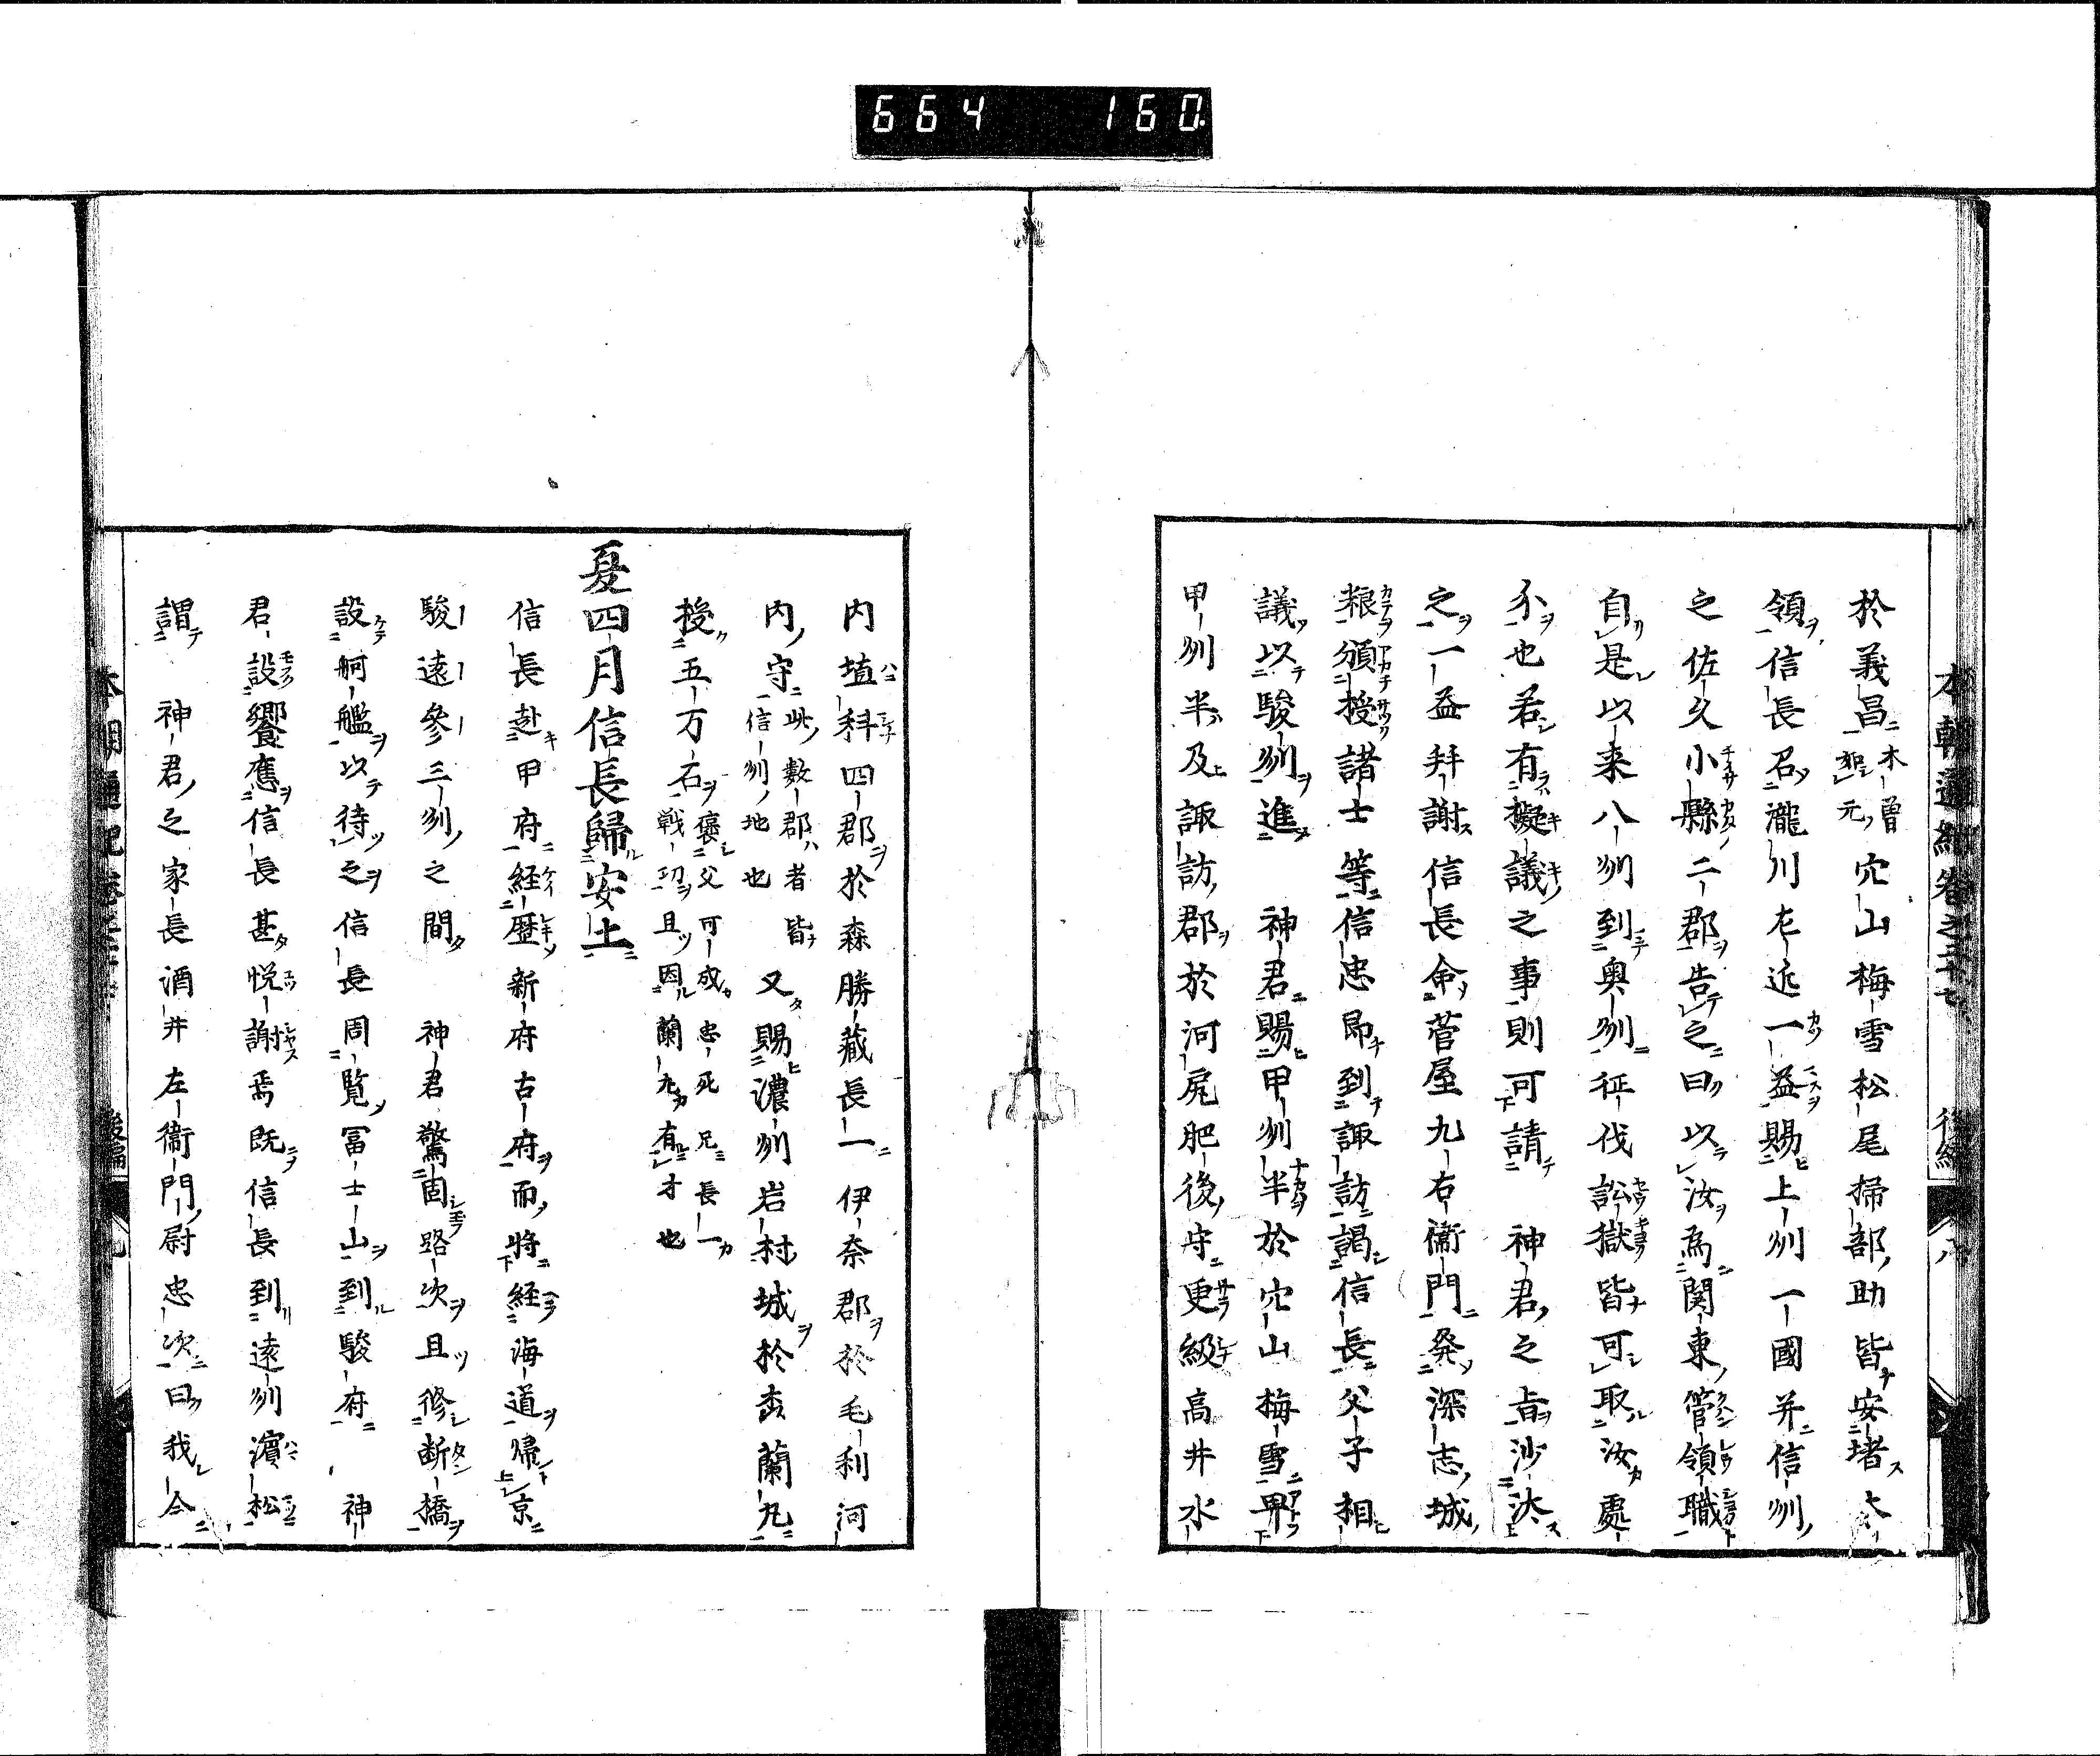 664 160
於義昌木曽如元穴山梅雪松尾掃部助皆安堵大
領信長召瀧川左近一益賜上州一國并信州
之佐久小縣二郡告之曰以汝為関東管領職
自是以来八州到奥州征伐訟獄皆可取汝處
不也若有擬議之事則可請 神君之旨沙汰
之一益拜謝信長命菅屋九右衛門発深志城
粮頒授諸士等信忠即到諏訪謁信長父子相
議以駿州進 神君賜甲州半於穴山梅雪甲
甲州半及諏訪郡於河尻肥後守更級高井水
内埴科四郡於森勝蔵長一伊奈郡於毛利河
内守此數郡者皆信州地也又賜濃州岩村城於森蘭丸
授五万石褒父可成忠死兄長一戦功且因蘭丸有才也
夏四月信長歸安土
信長赴甲府経歴新府古府而将経海道帰京
駿遠參三州之間 神君驚固路次且修断橋
設舸艦以待之信長周覧冨士山到駿府 神
君設饗應信長甚悦謝焉既信長到遠州濵松
謂 神君之家長酒井左衛門尉忠次曰我今